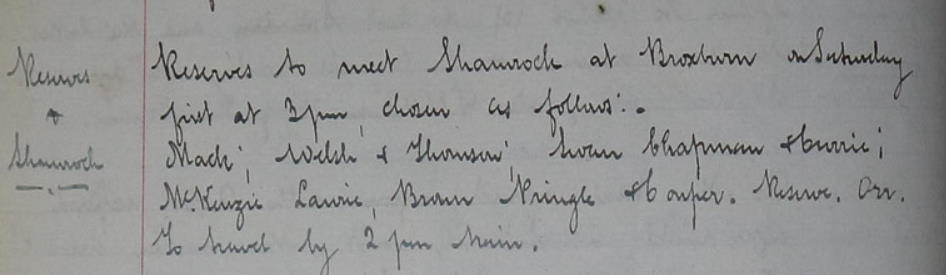 Reserves
&
Shamrock
Reserves to meet Shamrock at Broxburn on Saturday
first at 3pm, chosen as follows:-
Mack; Welsh & Thomson; Swan Chapman & Currie;
McKenzie Lawrie, Brown Pringle & Cooper. Reserve. Orr.
To travel by 2 pm train.